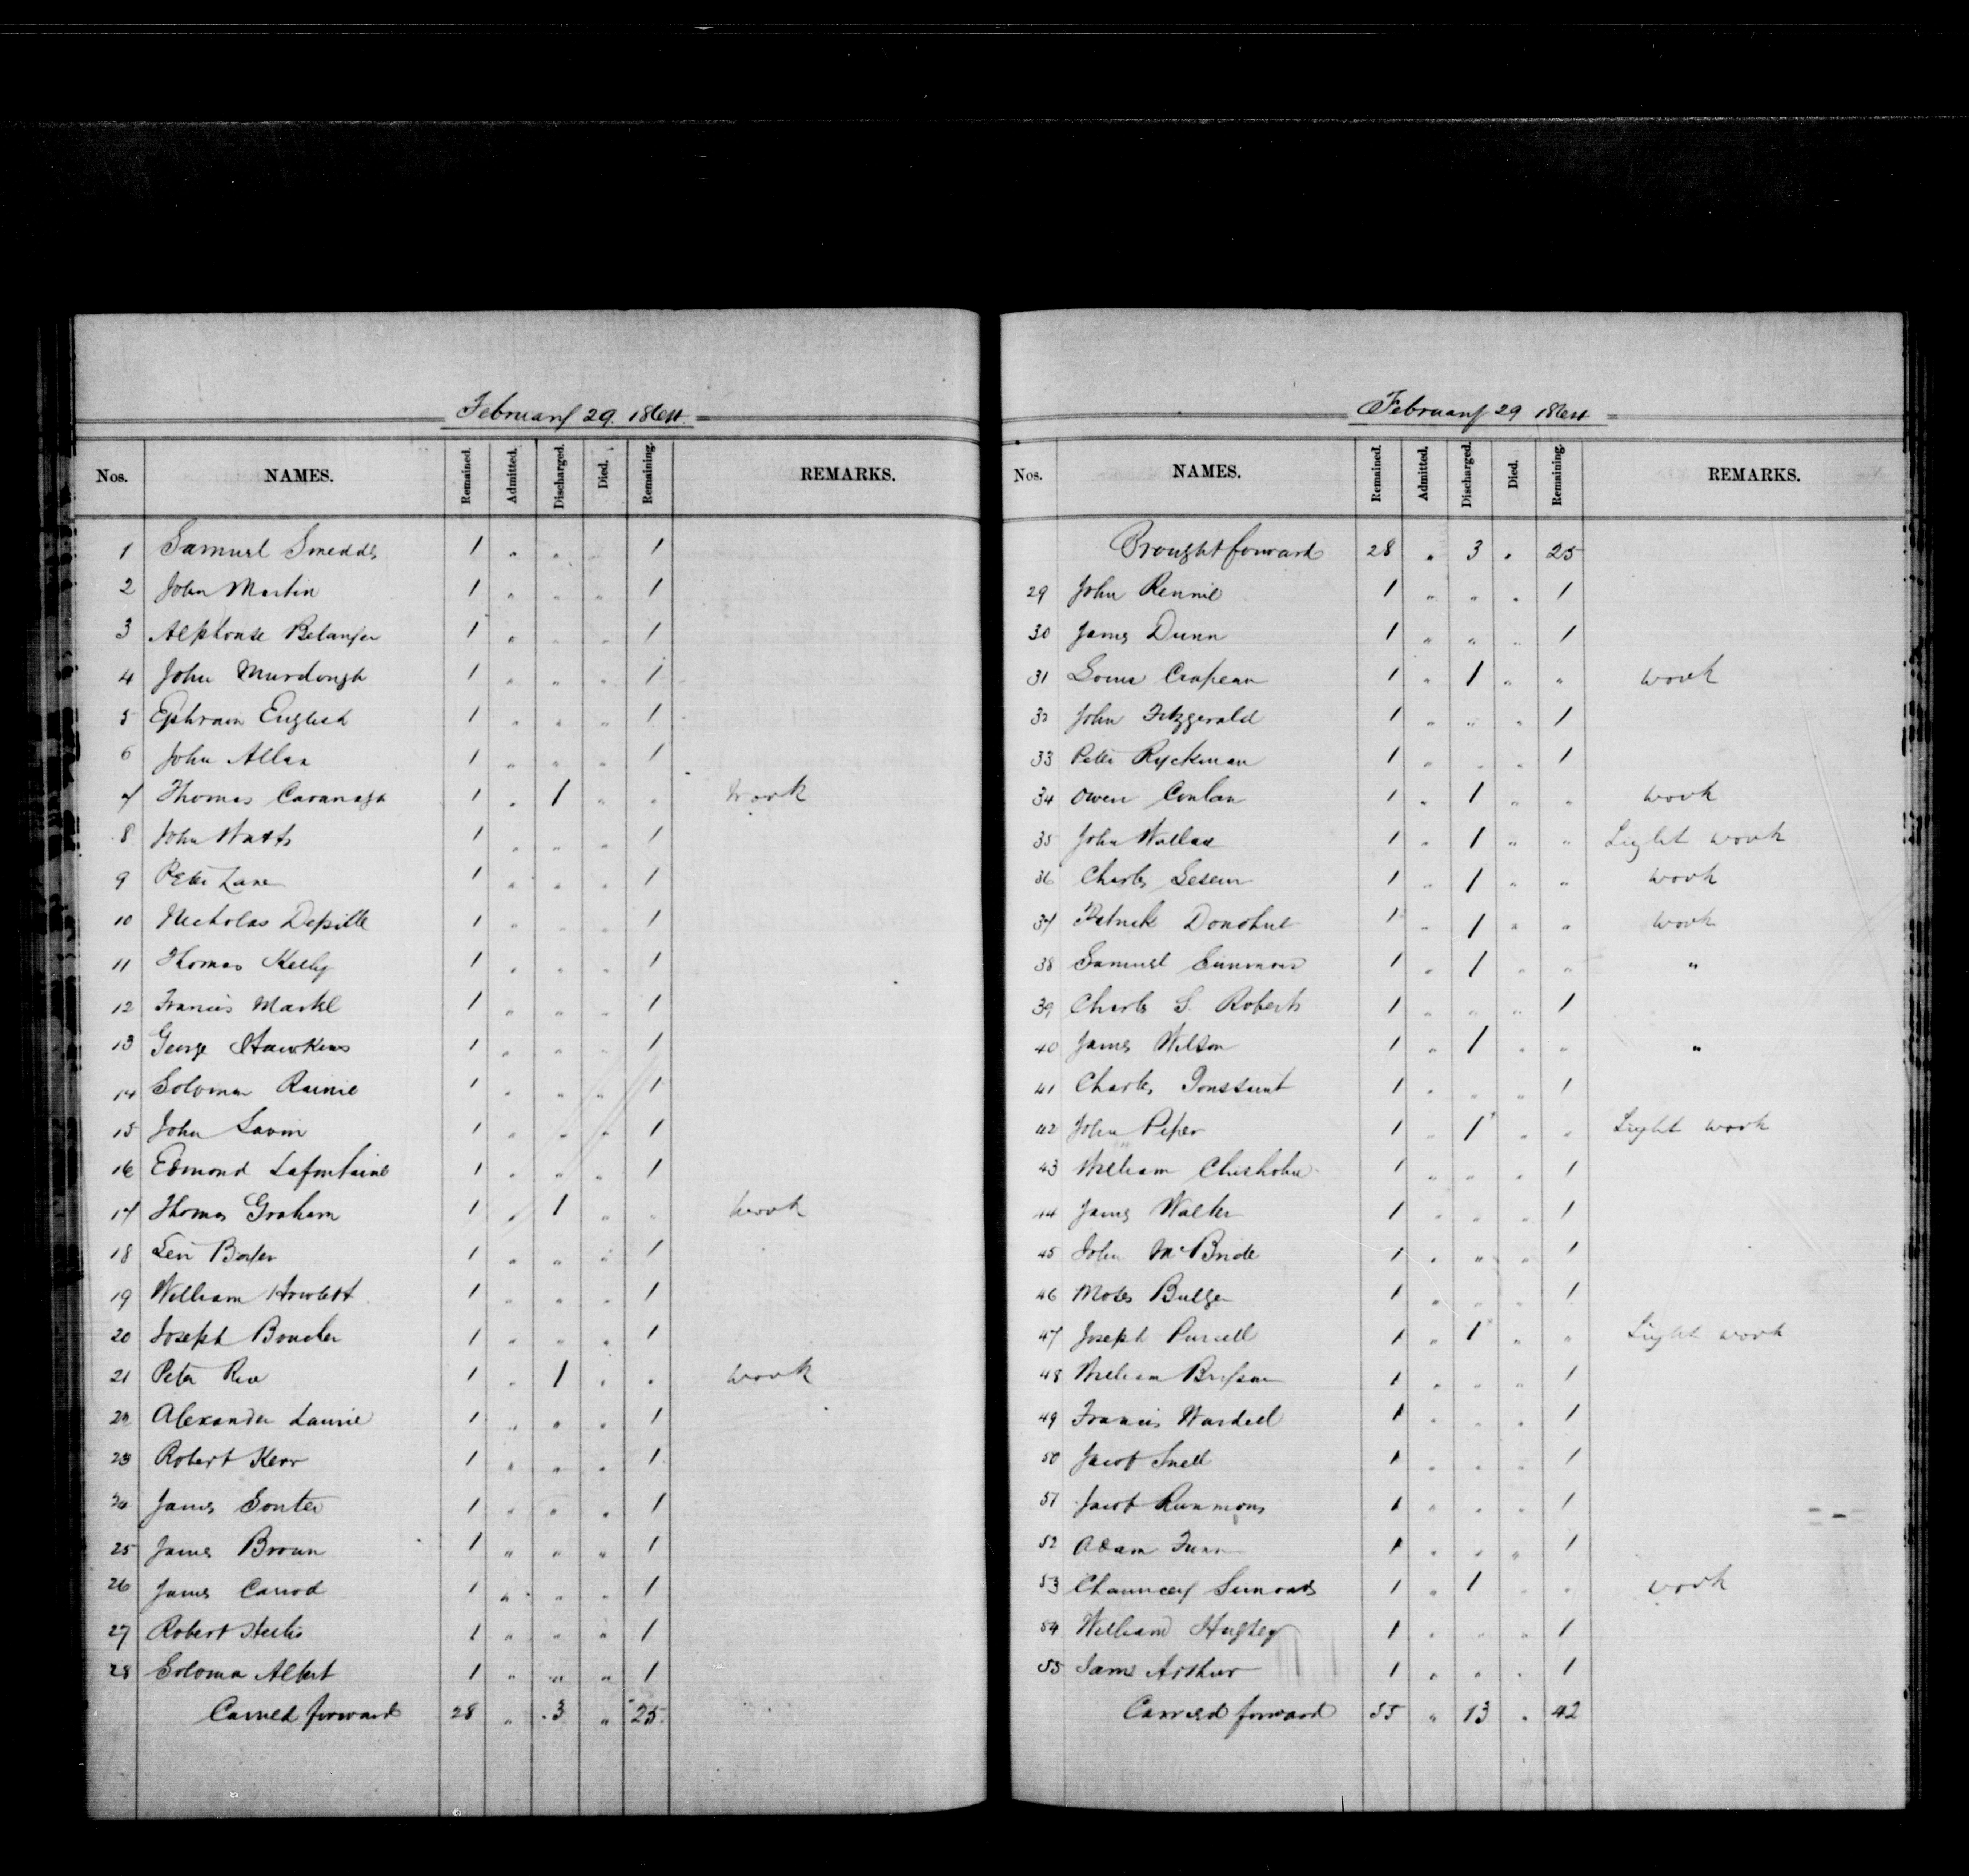 February 29. 1864.
Nos. NAMES. Remained. Admitted. Discharged. Died. Remaining. REMARKS.
1 Samuel Smedds 1 " " " 1
2 John Martin 1 " " " 1
3 Alphonse Belanger 1 " " " 1
4 John Murdough 1 " " " 1
5 Ephraim English 1 " " " 1
6 John Allan 1 " " " 1
7 Thomas Cavanagh 1 " 1 " " work
8 John Watts 1 " " " 1
9 Peter Lane 1 " " " 1
10 Nicholas 1 " " " 1
11 Thomas Kelly 1 " " " 1
12 Francis Markl 1 " " " 1
13 George Hawkins 1 " " " 1
14 Solomon Rainie 1 " " " 1
15 John Lavin 1 " " " 1
16 Edmond Lafontaine 1 " " " 1
17 Thomas Graham 1 " 1 " " work
18 Levi 1 " " " 1
19 William Howlett 1 " " " 1
20 Joseph Boucher 1 " " " 1
21 Peter 1 " 1 " " work
22 Alexander Laurie 1 " " " 1
23 Robert Kerr 1 " " " 1
24 James Souter 1 " " " 1
25 James Brown 1 " " " 1
26 James Carrod 1 " " " 1
27 Robert 1 " " " 1
28 Soloma Albert 1 " " " 1
Carried forward 28 " 3 " 25
February 29 1864
Nos. NAMES. Remained. Admitted. Discharged. Died. Remaining. REMARKS.
Brought forward 28 " 3 " 25
29 John Rennie 1 " " " 1
30 James Dunn 1 " " " 1
31 Louis Crapeau 1 " 1 " " work
32 John Fitzgerald 1 " " " 1
33 Peter Ryckman 1 " " " 1
34 Owen Conlan 1 " 1 " " work
35 John Wallace 1 " 1 " " Light work
36 Charles 1 " 1 " " work
37 Patrick Donohue 1 " 1 " " work
38 Samuel Simmons 1 " 1 " " "
39 Charles S. Roberts 1 " " " 1
40 James Wilson 1 " 1 " " "
41 Charles Toussaint 1 " " " 1
42 John Piper 1 " 1 " " Light work
43 William Chisholm 1 " " " 1
44 James Walker 1 " " " 1
45 John McBride 1 " " " 1
46 Moses Bulger 1 " " " 1
47 Joseph Purcell 1 " 1 " " Light work
48 William 1 " " " 1
49 Francis Wardell 1 " " " 1
50 Jacob Snell 1 " " " 1
51 Jacob Rummons 1 " " " 1
52 Adam 1 " " " 1
53 Chauncey Simonds 1 " 1 " " work
54 William Hughey 1 " " " 1
55 James Arthur 1 " " " 1
Carried forward 55 " 13 " 42